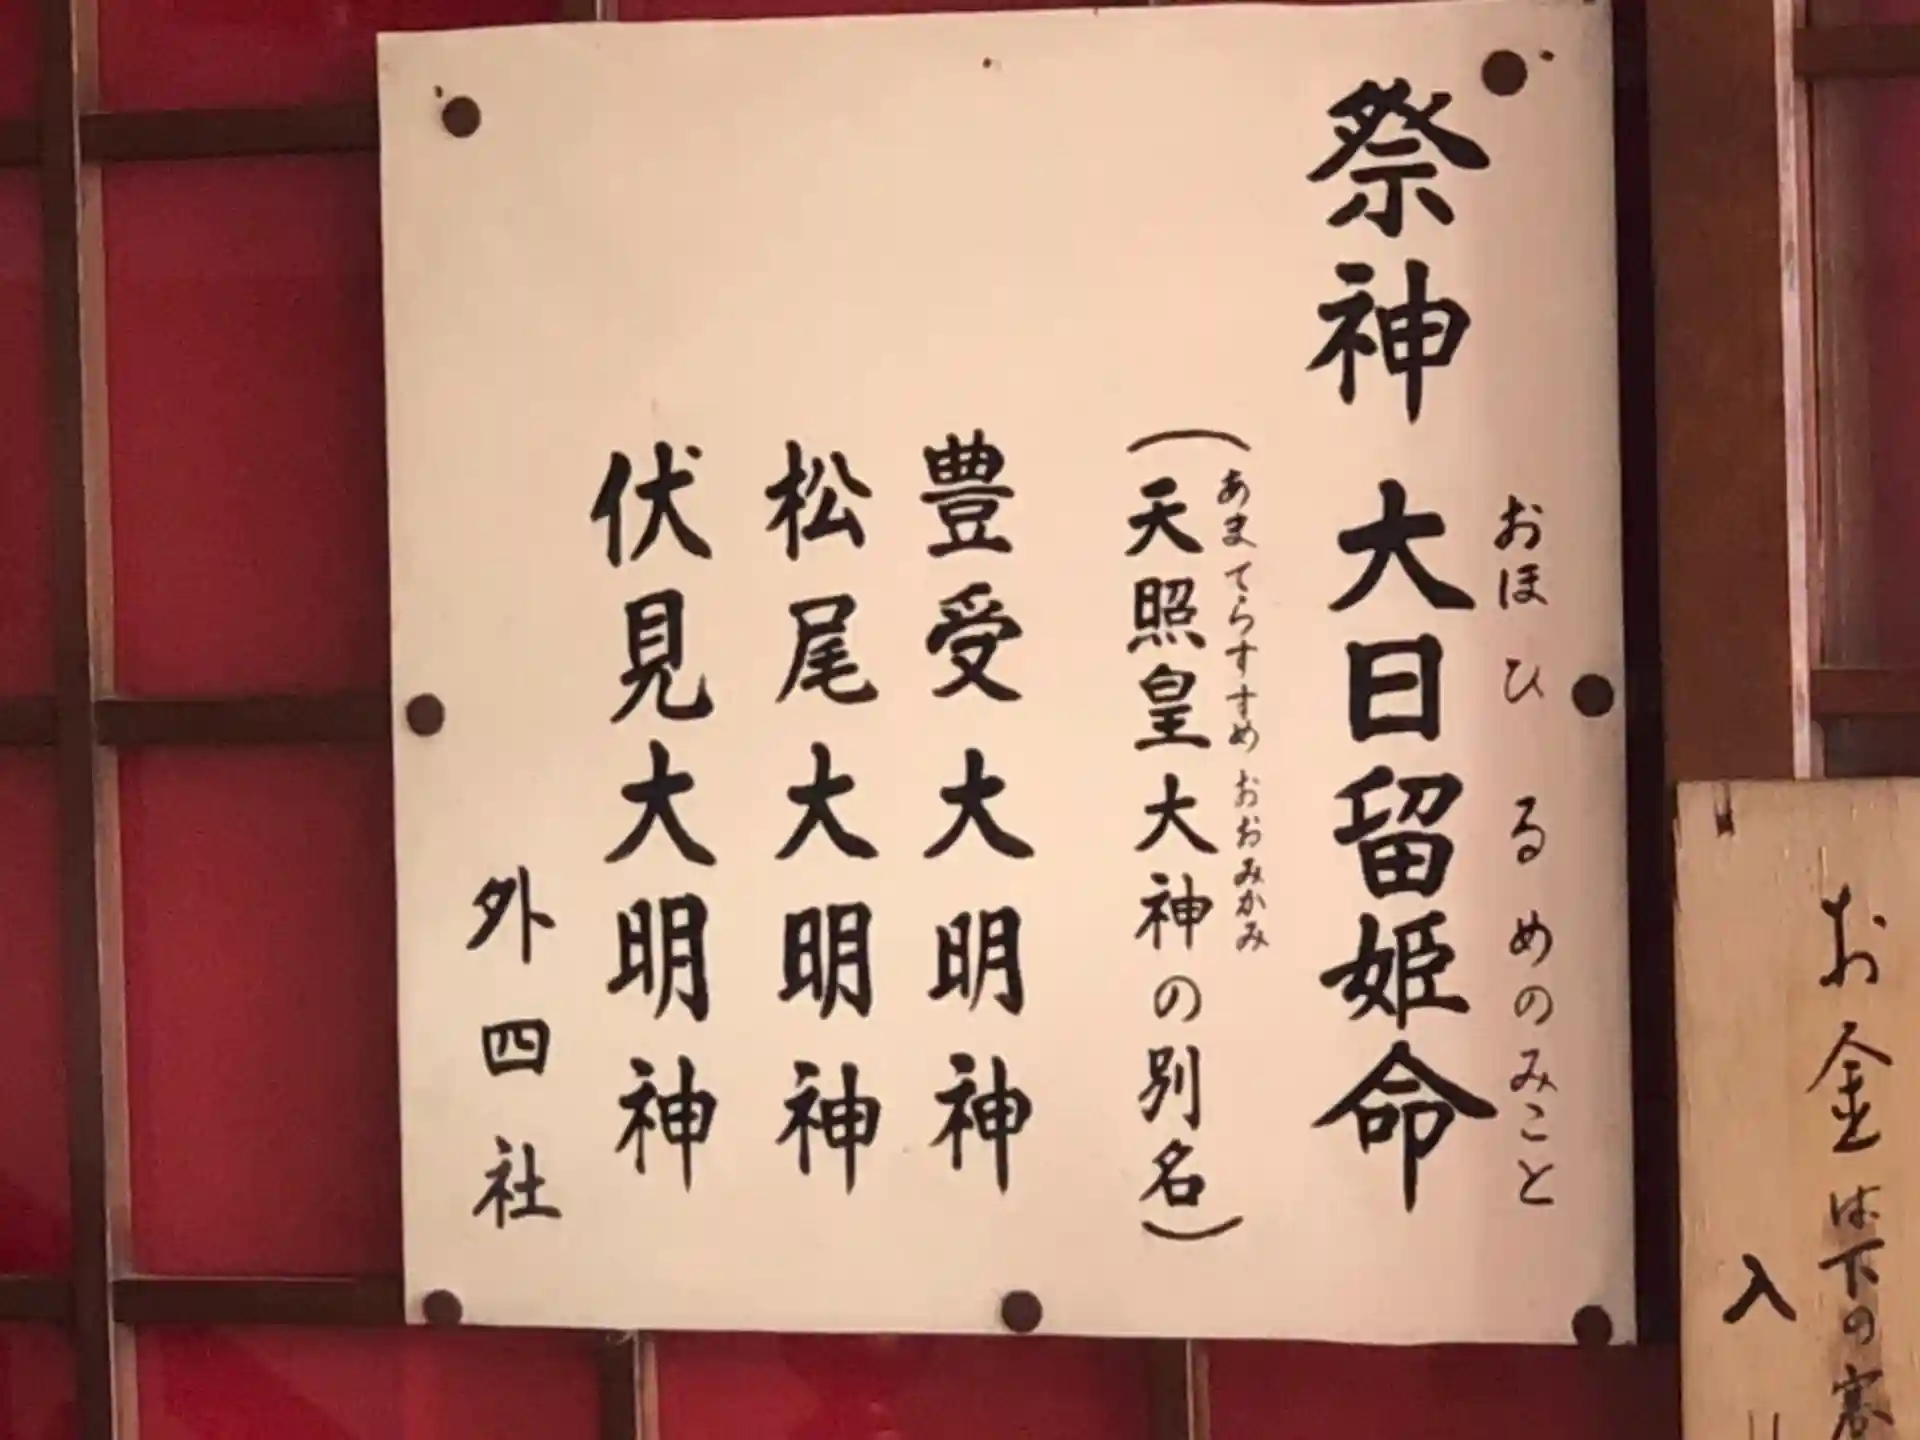 祭神 大日留姫命
おほひるめのみこと
(天照皇大神の別名)
あまてらすすめおおみかみ
豊受大明神
松尾大明神
伏見大明神
外四社
お金は下の
入